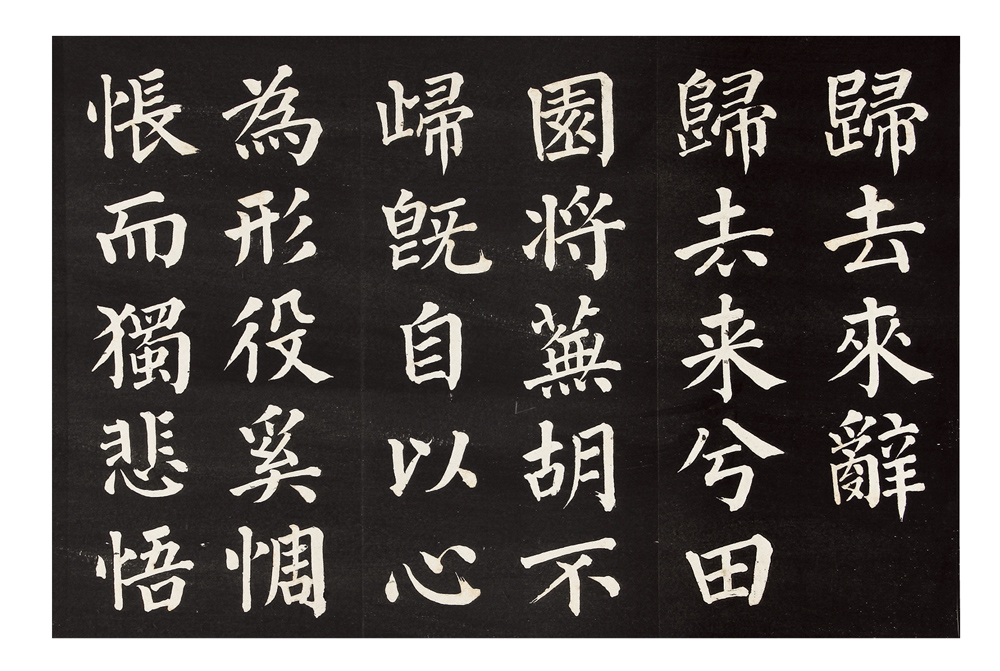 歸去來辭
歸去来兮田
園将蕪胡不
歸既自以心
為形役奚惆
悵而獨悲悟